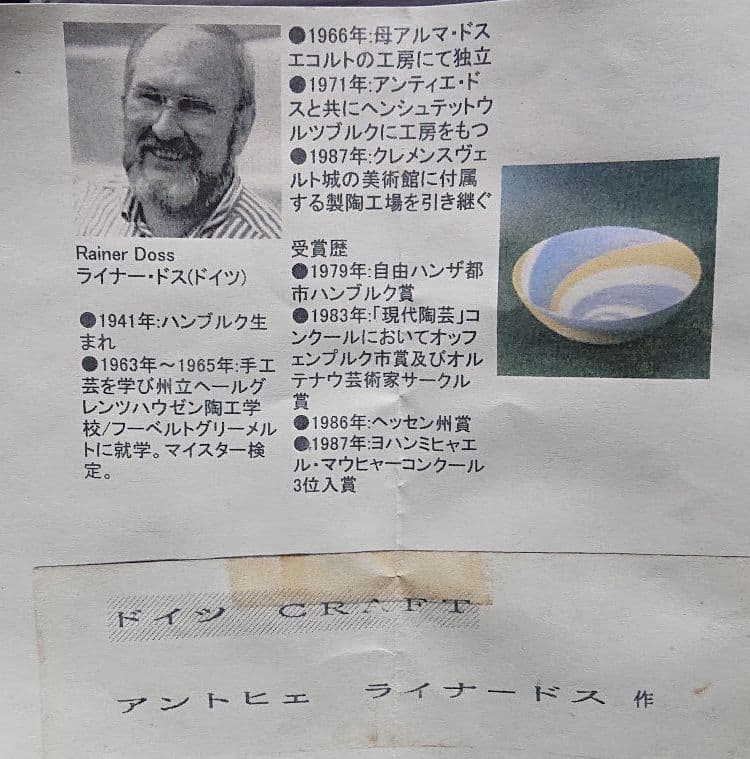 Rainer Doss
ライナー・ドス(ドイツ)
●1941年:ハンブルク生
まれ
●1963年～1965年:手工
芸を学び州立ヘールグ
レンツハウゼン陶工学
校/フーベルトグリーメル
トに就学。マイスター検
定。
●1966年:母アルマ・ドス
エコルトの工房にて独立
●1971年:アンティエ・ド
スと共にヘンシュテットウ
ルツブルクに工房をもつ
●1987年:クレメンスヴェ
ルト城の美術館に付属
する製陶工場を引き継ぐ
受賞歴
●1979年:自由ハンザ都
市ハンブルク賞
●1983年:「現代陶芸」コ
ンクールにおいてオッフ
ェンブルク市賞及びオル
テナウ芸術家サークル
賞
●1986年:ヘッセン州賞
●1987年:ヨハンミヒャエ
ル・マウヒャーコンクール
3位入賞
ドイツ CRAFT
アントヒェ ライナードス 作